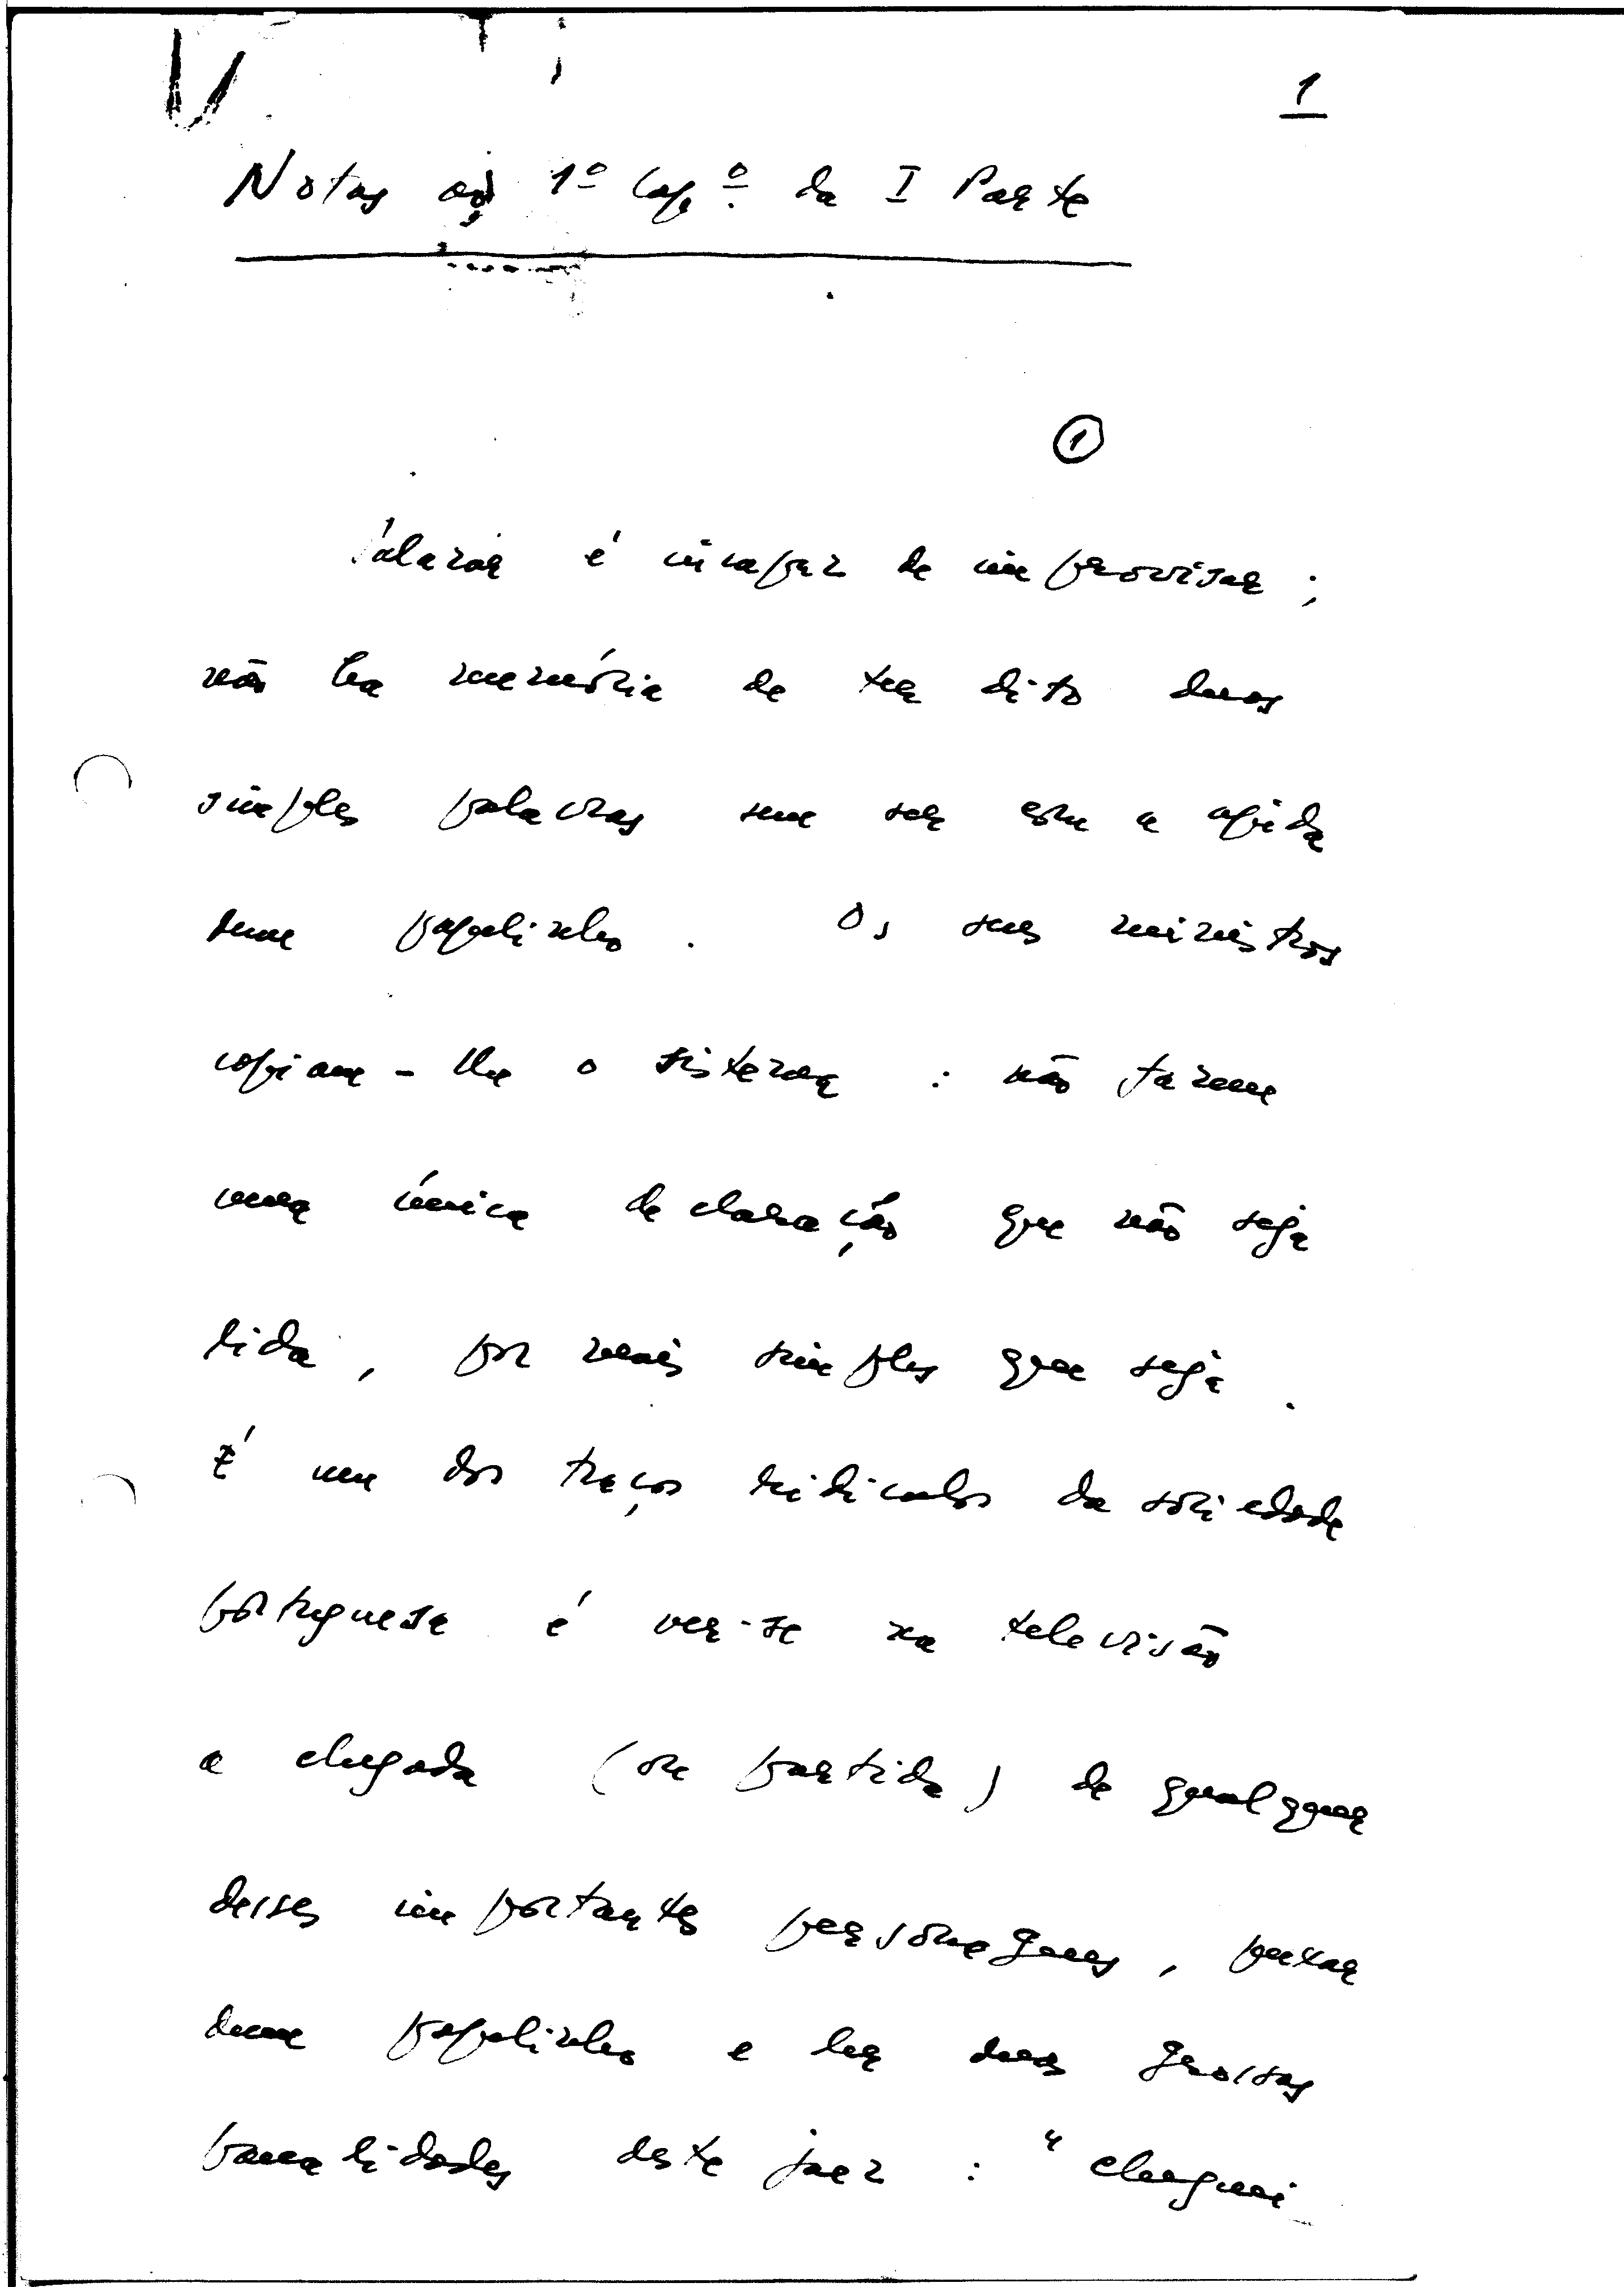 1
Notas ao 1º Cap.º da I Parte
1
Salazar é incapaz de improvisar ;
não ha memória de ter dito duas
simples palavras sem ser com a ajuda
dum papelinho . Os seus ministros
copiam-lhe o sistema : não fazem
uma única declaração que não seja
lida , por mais simples que seja .
É um dos traços ridiculos da sociedade
portuguesa é ver-se na televisão
a chegada (ou partida) de qualquer
desses importantes personagens , puxar
dum papelinho e ler duas grossas
banalidades deste jaez : " cheguei